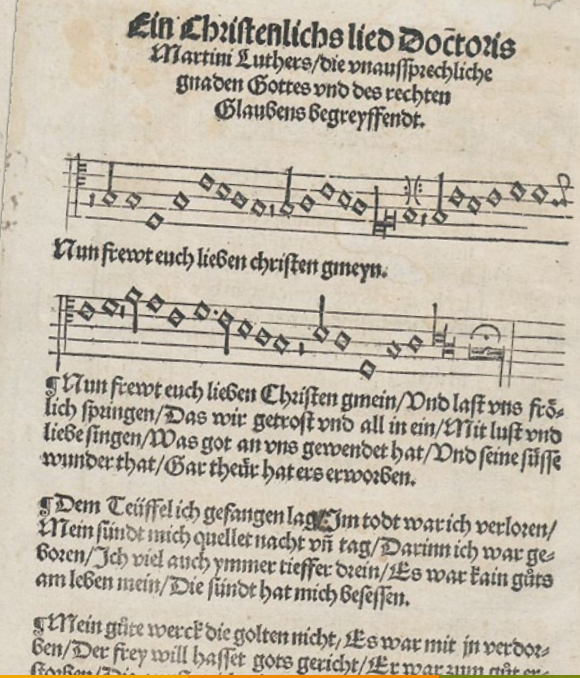 Ein Christenlichs lied Doctoris
Martini Luthers/die vnaussprechliche
gnaden Gottes vnd des rechten
Glaubens begreyffendt.
Nun frewt euch lieben christen gmeyn.
¶Nun frewt euch lieben Christen gmein/Vnd last vns frö-
lich springen/Das wir getrost vnd all in ein/Mit lust vnd
liebe singen/Was got an vns gewendet hat/Vnd seine süsse
wunder that/Gar theür hat ers erworben.
¶Dem Teüffel ich gefangen lag/Im todt war ich verloren/
Mein sündt mich quellet nacht vñ tag/Darinn ich war ge-
boren/Ich viel auch ymmer tieffer drein/Es war kain gůts
am leben mein/Die sündt hat mich besessen.
¶Mein gůte werck die golten nicht/Es war mit jn verdor-
ben/Der frey will hasset gots gericht/Er war zum gůt er-